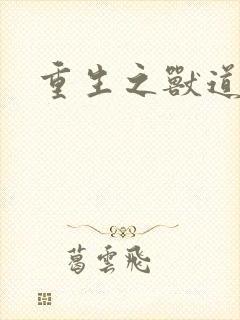 重生之獸道
葛雲飛